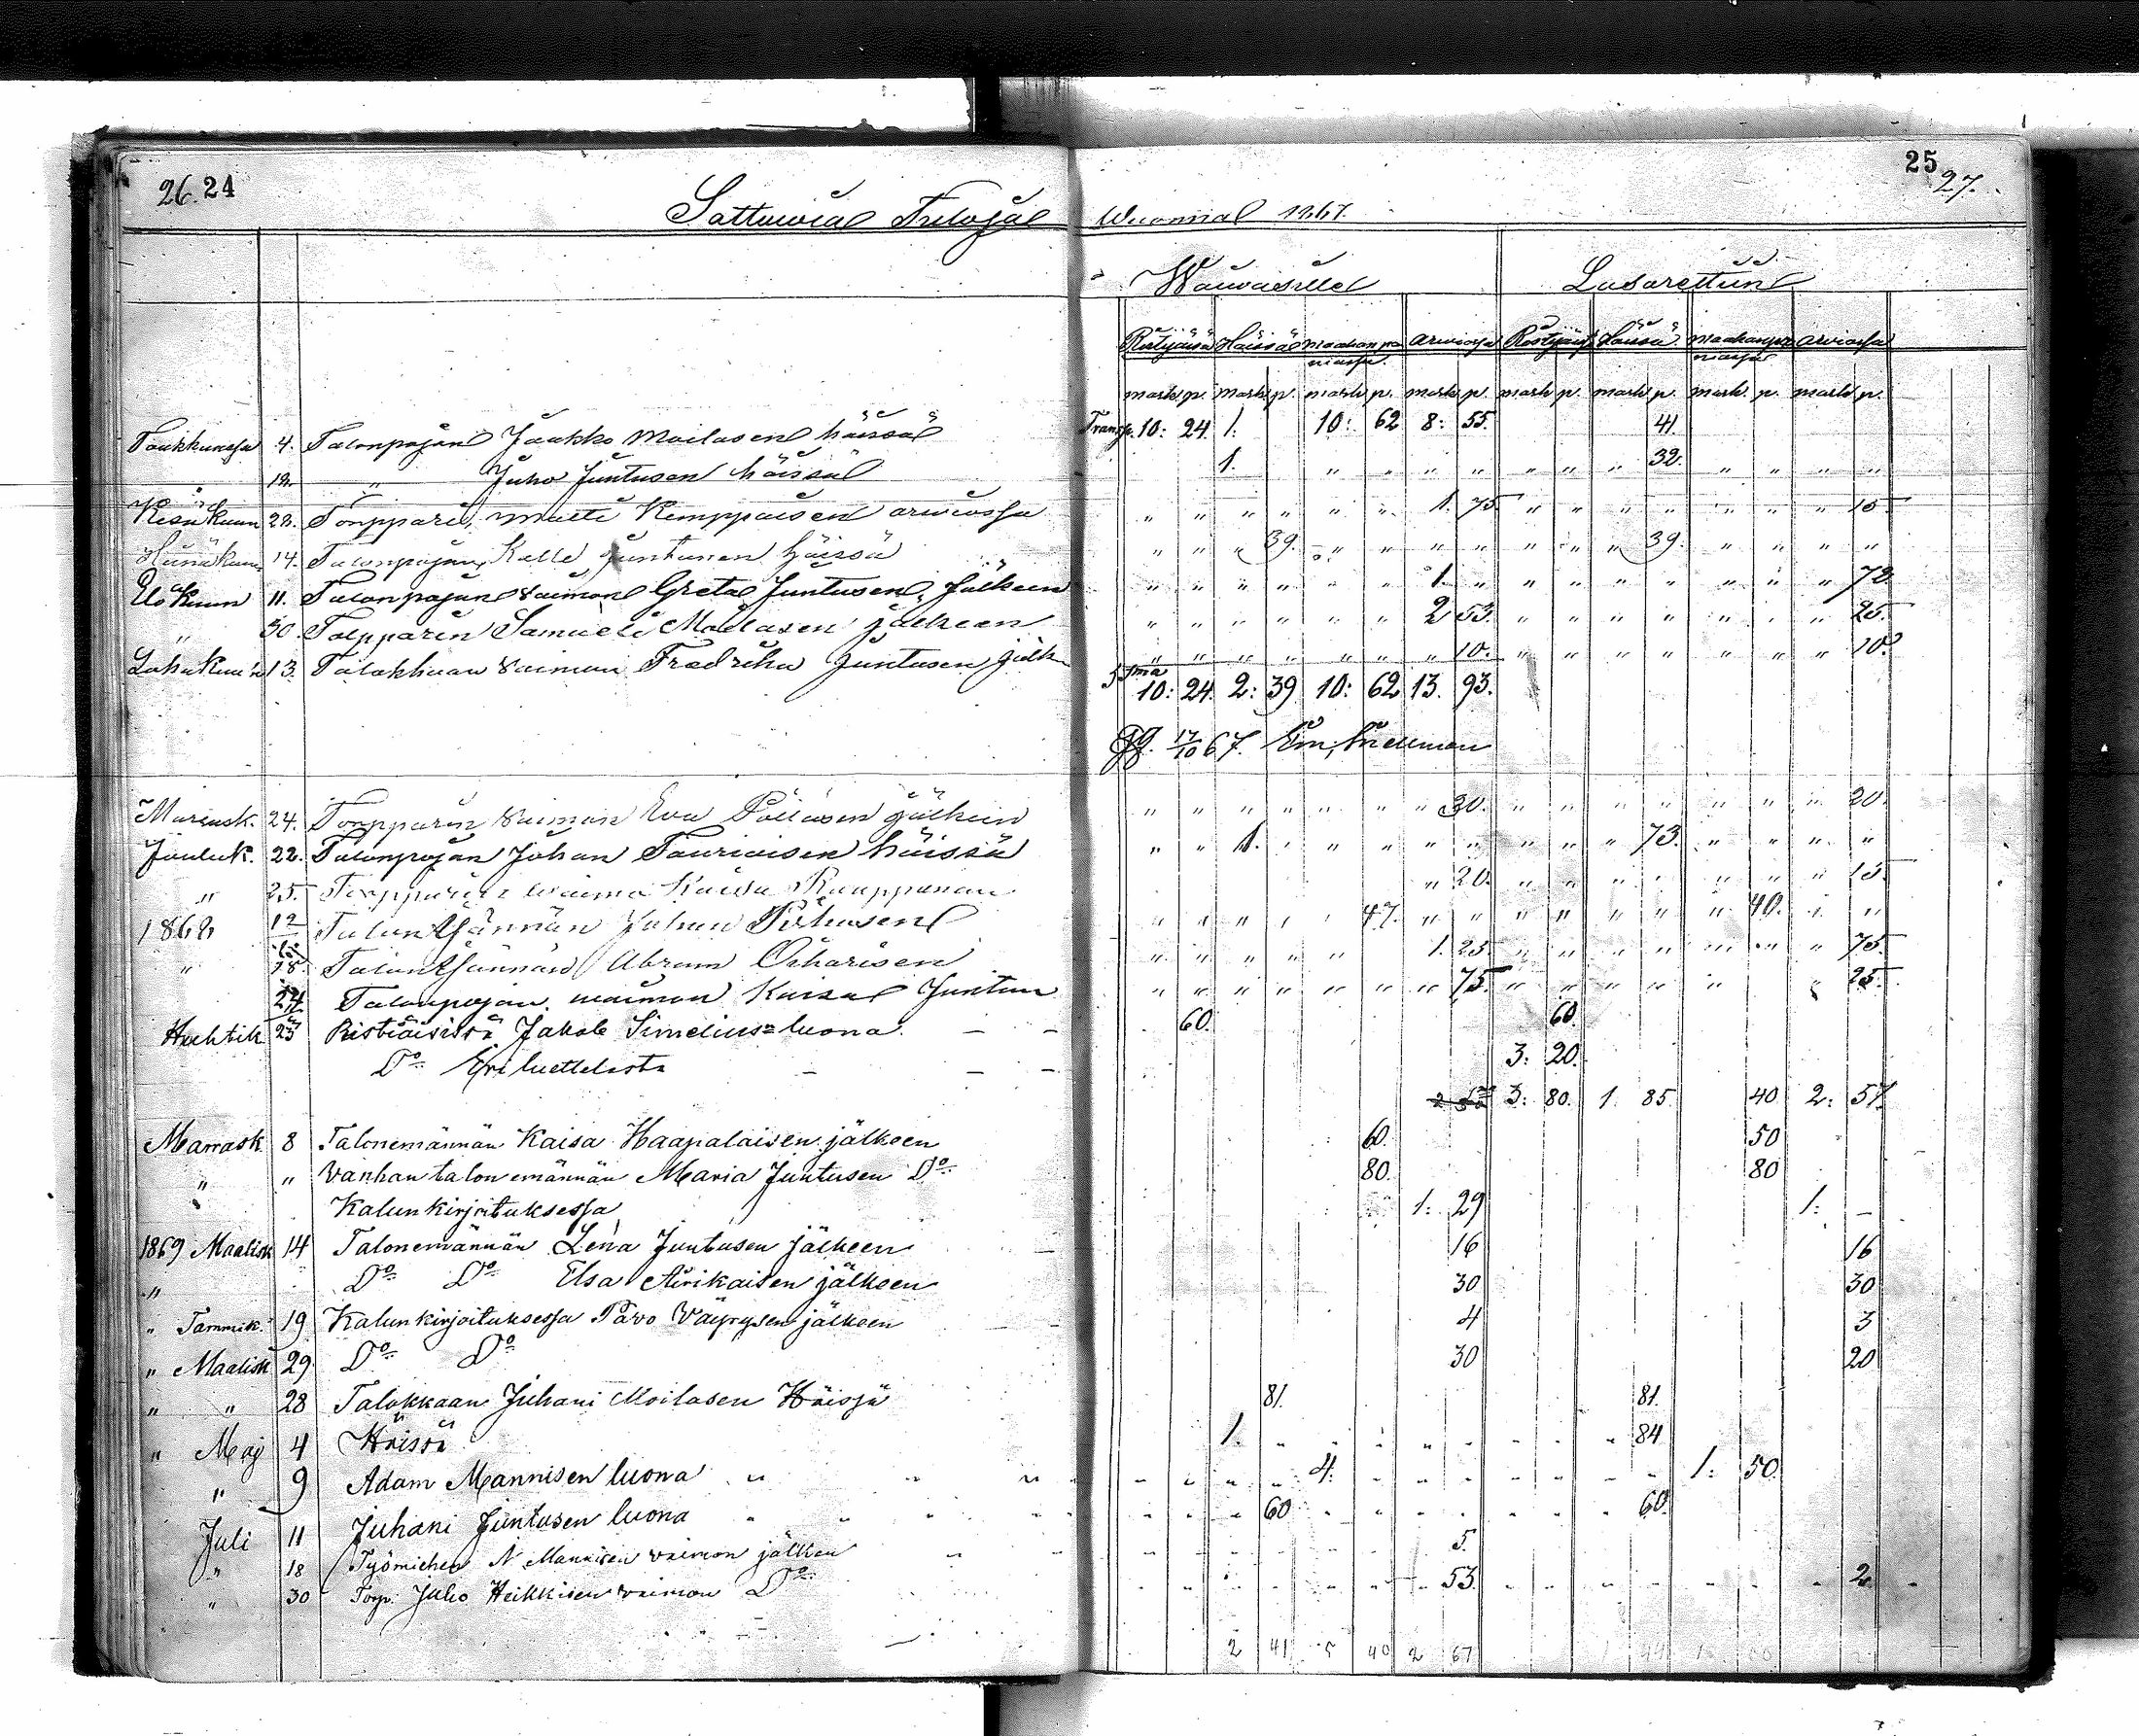 26. 24
25 27.
Sattuwia Tuloja Wuonna 1867.
Waiwasille Lasarettiin
Ristijäisä Häissä maahanpaniassa. Arwiossa Ristijäisä Häissä maahanpaniassa arviossa
mark p. mark p. mark p. mark p. mark p. mark p. mark. p. mark p.
Toukkuussa 4. Talonpojan Jaakko Moilasen häissä Transp. 10: 24. 1. 10: 62 8: 55. 41.
12. " Juho Juntusen häissä 1. " " " " " " " 32. " " " "
Kesäkuun 22. Torpparin Matti Kemppaisen arwiossa " " " " " " 1. 75 " " " " " " " 15
Heinäkuun 14. Talonpojan Kalle Juntunen häissä " " " 39. " " " " " " " 39. " " " "
Elokuun 11. Talonpojan waimon Greta Juntusen Jälkeen " " " " " " 1. " " " " " " " " 72
" 30. Torpparin Samueli Moilasen jälkeen " " " " " " 2 53. " " " " " " " 25.
Lokakuun 13. Talokkaan waimon Fredrika Juntusen jälk " " " " " " " 10. " " " " " " " 10.
Sma 10: 24. 2: 39 10: 62 13. 93.
17/10 67.
Marrask. 24. Torpparin waimon Eva jälkeen " " " " " " " 30. " " " " " " " 20.
Jouluk. 22. Talonpojan Johan Tauriaisen häissä " " 1. " " " " " " " " 73. " " " "
" 25. Torpparin waimo Kaisa " 20. " " " " " " " 15
1868 12 Talon Isännän Juhan " " " " " 47. " " " " " " " 40. " "
" 18 Talon Isännän Abram " " " " " 1. 25 " " " " " " " 75.
24 Talonpojan waimon Kaisa Juntun " " " " " " " 75 " " " " " 25.
Huhtik. 25 Ristiäisissä Jakob Simelius luona. — — 60. 60.
Do Eri luettelosta — — — 3: 20.
3: 80. 1. 85. 40 2: 57.
Marrask. 8 Talonemännän Kaisa Haapalaisen jälkeen 60. 50
" " Vanhan talon emännän Maria Juntusen Do 80. 80
Kalunkirjoituksessa 1: 29 1: —
1869 Maalisk 14 Talonemännän Lena Juntusen jälkeen 16 16
" Do Do Elsa Airikaisen jälkeen 30 30
" Tammik. 19 Kalunkirjoituksessa Pavo Väyrysen jälkeen 4 3
" Maalisk 29 Do Do 30 20
" " 28 Talokkaan Juhani Moilasen Häissä 81. 81.
" Maj 4 Häissä 1. 84
" 9 Adam Mannisen luona " " " 4. 1: 50.
Juli 11 Juhani Juntusen luona 60 60.
" 18 Työmiehen N Mannisen vaimon jälkeen 5.
" 30 Torp. Juho Heikkisen vaimon Do 53. 2
2 41 5 40 2 67